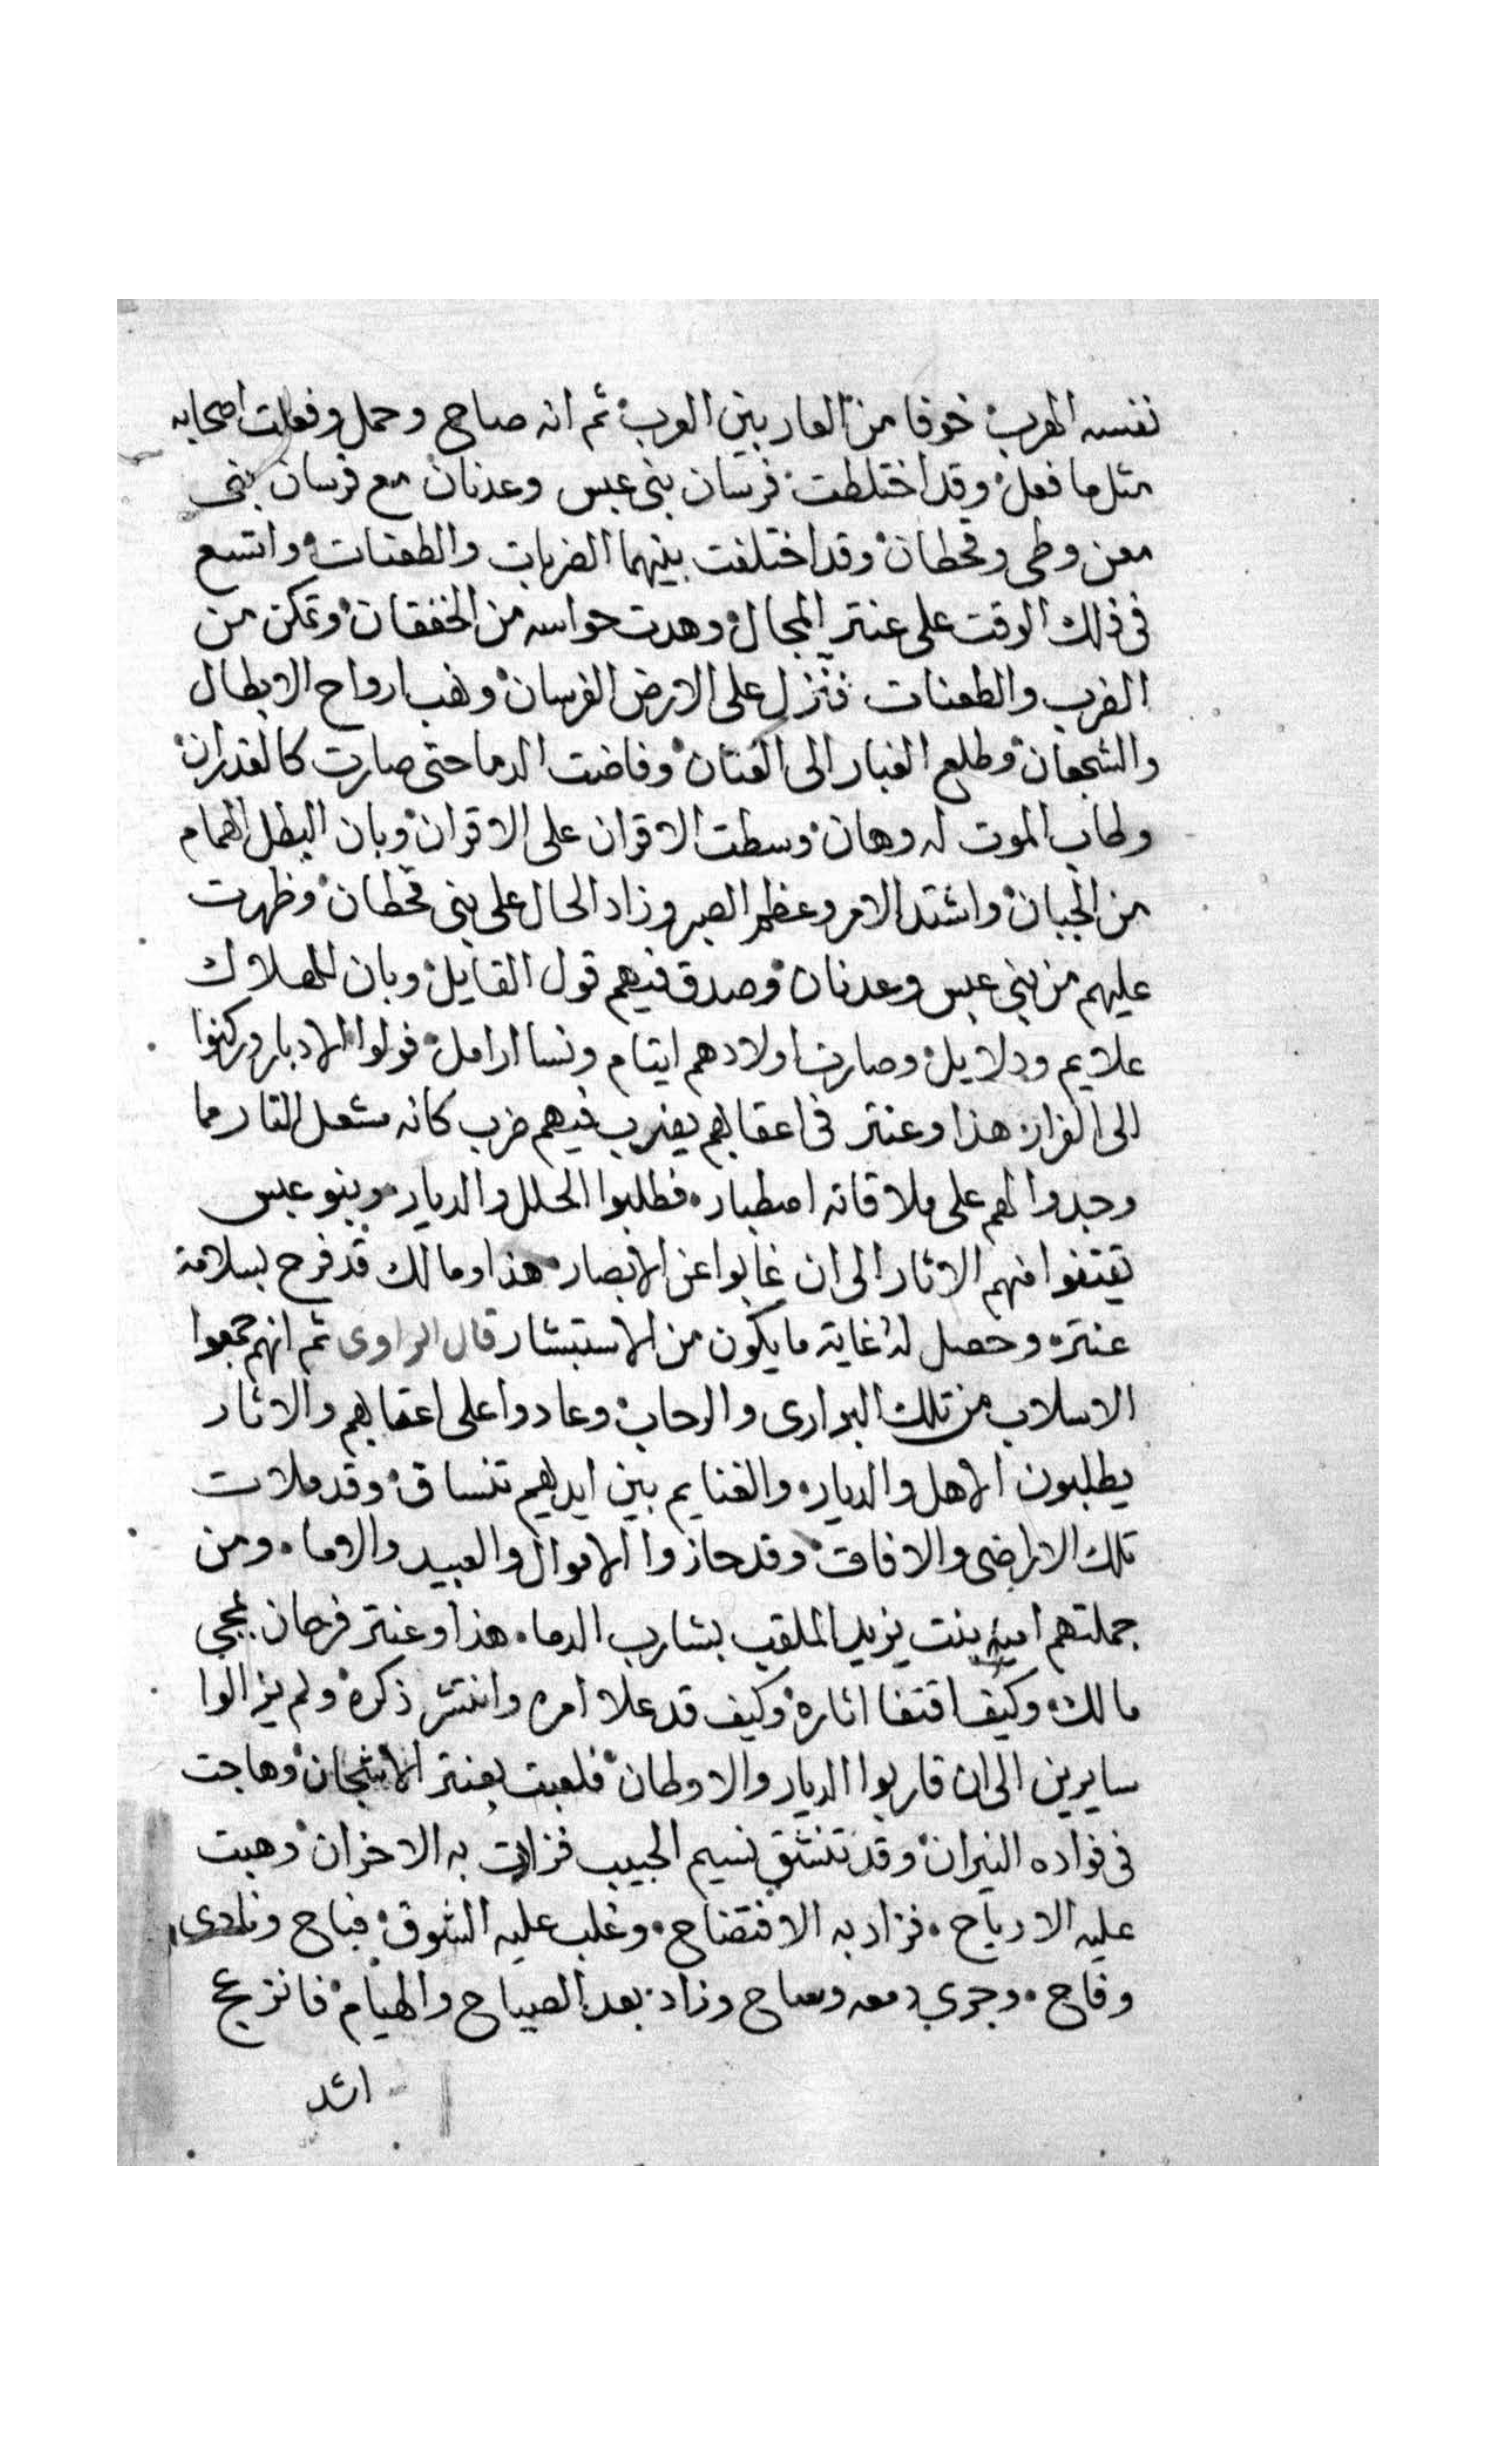 نفسه الهرب خوفا من العار بين العرب ثم انه صاح وحمل وفعلت اصحابه
مثل ما فعل وقد اختلطت فرسان بنى عبس وعدنان مع فرسان بنى
معن وطى وقحطان وقد اختلفت بينهما الضربات والطعنات واتسع
فى ذلك الوقت على عنتر المجال وهدت حواسه من الخفقان وتمكن من
الضرب والطعنات فنزل على الارض الفرسان ونهب ارواح الابطال
والشجعان وطلع الغبار الى العنان وفاضت الدما حتى صارت كالغدران
وطاب الموت له وهان وسطت الاقران على الاقران وبان البطل الهمام
من الجبان واشتد الامر وعظم الصبر وزاد الحال على بنى قحطان وظهرت
عليهم من بنى عبس وعدنان وصدق فيهم قول القايل وبان للهلاك
علايم ودلايل وصارت اولادهم ايتام ونسا ارامل فولوا الادبار وركنوا
الى الفرار هذا وعنتر فى اعقابهم يضرب فيهم ضرب كانه مشعل النار فما
وجدوا لهم على ملاقاته اصطبار فطلبوا الحلل والديار وبنو عبس
تقتفوا منهم الاثار الى ان غابوا عن الابصار هذا ومالك قد فرح بسلامة
عنتره وحصل له غاية ما يكون من الاستبشار قال الراوى ثم انهم جمعوا
الاسلاب من تلك البوارى والرحاب وعادوا على اعقابهم والاثار
يطلبون الاهل والديار والغنايم بين ايديهم تنساق وقد ملات
تلك الاراضى والافاق وقد حازوا الاموال والعبيد والاما ومن
جملتهم اميه بنت يزيد الملقب بشارب الدما هذا وعنتر فرحان بمجى
مالك وكيف اقتفا اثاره وكيف قد علا امره وانتشر ذكره ولم يزالوا
سايرين الى ان قاربوا الديار والاوطان فلعبت بعنتر الاشجان وهاجت
فى فواده النيران وقد تنشق نسيم الحبيب فزادت به الاحزان وهبت
عليه الارياح فزاد به الافتضاح وغلب عليه الشوق فباح ونادى
وفاح وجري دمعه وساح وزاد بعد الصياح والهيام فانزعج
اشد